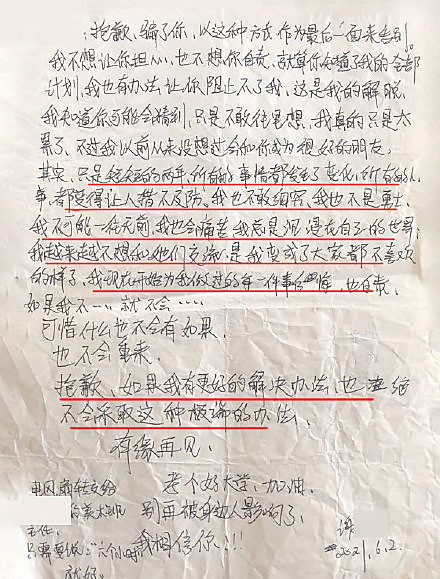 ：抱歉、骗了你，以这种方式作为最后一面来告别。
我不想让你担心，也不想你自责，就算你知道了我的全部
计划，我也有办法让你阻止不了我，这是我的解脱
我知道你可能会猜到，只是不敢往里想，我真的只是太
累了、不过我以前从来没想过会和你成为很好的朋友，
其实、只是短短的两年，所有的事情都发生了变化，所有的人
事，都变得让人措不及防，我也不敢细究、我也不是勇士
我不可能一往无前，我也会痛苦，我总是沉浸在自己的世界，
我越来越不想和她们交流，是我变成了大家都不喜欢
的样子、我现在开始为我做过的每一件事后悔，也自责、
如果我不……就不会……
可惜什么也不会有如果，
也不会重来，
抱歉、如果我有更好的解决办法，也 绝
不会采取这种极端的办法、
有缘再见、
考个好大学、加油，
别再被身边人影响了，
我相信你、！！！
转交给
美术班
主任，
只需要说："六个小时
就好。
2021.6.2